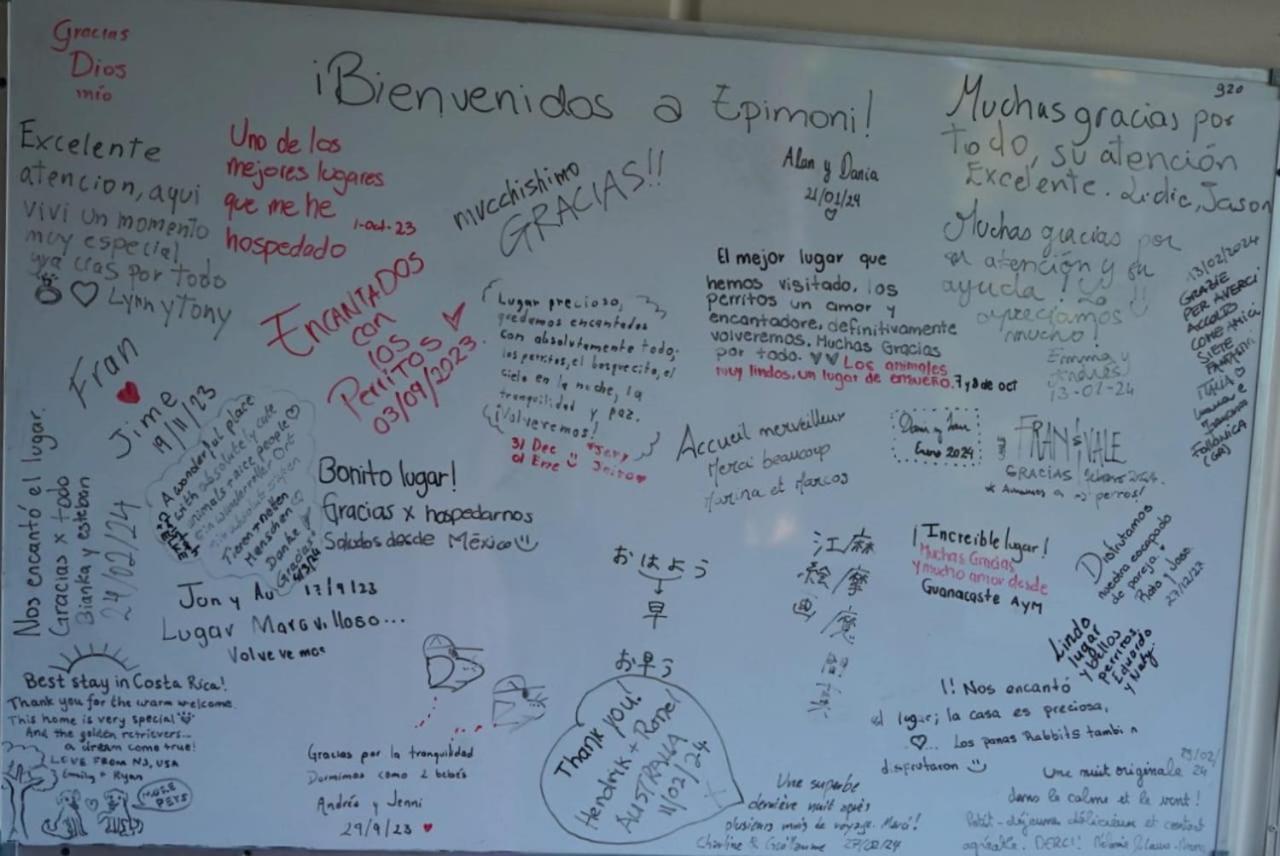 Gracias
Dios
mío
¡Bienvenidos a Epimoni!
920
Muchas gracias por
todo, su atención
Excelente. Lidic, Jason
Excelente
atencion, aqui
vivi un momento
muy especial
gracias por todo
Lynn y Tony
Uno de los
mejores lugares
que me he
hospedado
1-oct-23
mucchishimo
GRACIAS!!
Alan y Dania
21/01/24
Muchas gracias por
su atención y su
ayuda! Lo
apreciamos
mucho!
Emma y
Andrés
13-02-24
13/02/2024
GRAZIE
PER AVERCI
ACCOLTO
COME AMICI
SIETE
FANTASTICI
ITALIA
Follonica
(GR)
ENCANTADOS
con
los
Perritos
03/09/2023
Lugar precioso,
quedamos encantados
con absolutamente todo;
los perritos, el bosquecito, el
cielo en la noche, la
tranquilidad y paz.
¡Volveremos!
31 Dec
01 Ene
El mejor lugar que
hemos visitado, los
perritos un amor y
encantadore, definitivamente
volveremos. Muchas Gracias
por todo. Los animales
muy lindos, un lugar de ensueño. 7 y 8 de oct
Fran
Jime
19/11/23
Nos encantó el lugar.
Gracias x todo
Bianka y esteban
24/02/24
A wonderful place
with absolutely cute
animals + nice people
Ein wundervoller Ort
mit absolut süßen
Tieren + netten
Menschen
Danke
Gracias
Bonito lugar!
Gracias x hospedarnos
Saludos desde México
Accueil merveilleux
Merci beaucoup
Marina et Marcos
Enero 2024
FRAN & VALE
GRACIAS, febrero 2024.
* Amamos a perros!
Jon y Au 17/9/23
Lugar Maravilloso...
Volvevemos
おはよう
早
お早う
江麻
絵/摩
画/魔
¡Increible lugar!
Muchas Gracias
y mucho amor desde
Guanacaste AyM
Disfrutamos
nuestra escapada
de pareja
27/12/23
Lindo
lugar
y bellos
perritos
Eduardo
y Naty.
Best stay in Costa Rica!
Thank you for the warm welcome.
This home is very special
And the golden retrievers...
a dream come true!
LOVE FROM NJ, USA
Emily + Ryan
MORE
PETS
Gracias por la tranquilidad
Dormimos como 2 bebés
Andrés y Jenni
29/9/23
Thank you!
Hendrik + Ronel
AUSTRALIA
11/02/24
!! Nos encantó
el lugar; la casa es preciosa,
... Los panas Rabbits tambi n
disfrutaron
Une superbe
dernière nuit après
plusieurs mois de voyage. Merci!
Charline & Guillaume 27/02/24
Une nuit originale
dans le calme et le vent!
Petit-déjeuner délicieux et contact
agréable. MERCI!